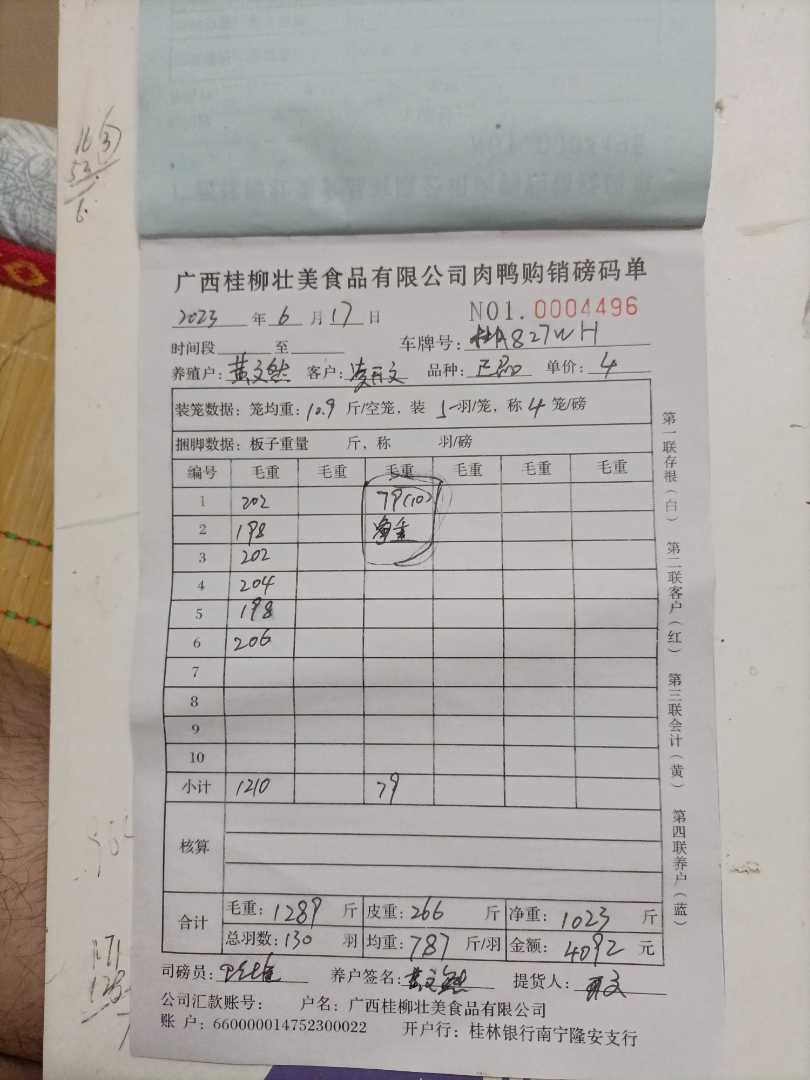 16 3
53
6
广西桂柳壮美食品有限公司肉鸭购销磅码单
2023 年 6 月 17 日 NO1. 0004496
时间段 至 车牌号: 桂A827WH
养殖户: 黄文然 客户: 凌万文 品种: 正品 单价: 4
装笼数据: 笼均重: 10.9 斤/空笼, 装 5 羽/笼, 称 4 笼/磅
捆脚数据: 板子重量 斤, 称 羽/磅
编号 毛重 毛重 毛重 毛重 毛重 毛重
1 202 79(10)
2 198 净重
3 202
4 204
5 198
6 206
7
8
9
10
小计 1210 79
核算
合计 毛重: 1289 斤 皮重: 266 斤 净重: 1023 斤
总羽数: 130 羽 均重: 787 斤/羽 金额: 4092 元
司磅员: 养户签名: 黄文然 提货人:
公司汇款账号: 户名: 广西桂柳壮美食品有限公司
账 户: 660000014752300022 开户行: 桂林银行南宁隆安支行
第一联存根(白) 第二联客户(红) 第三联会计(黄) 第四联养户(蓝)